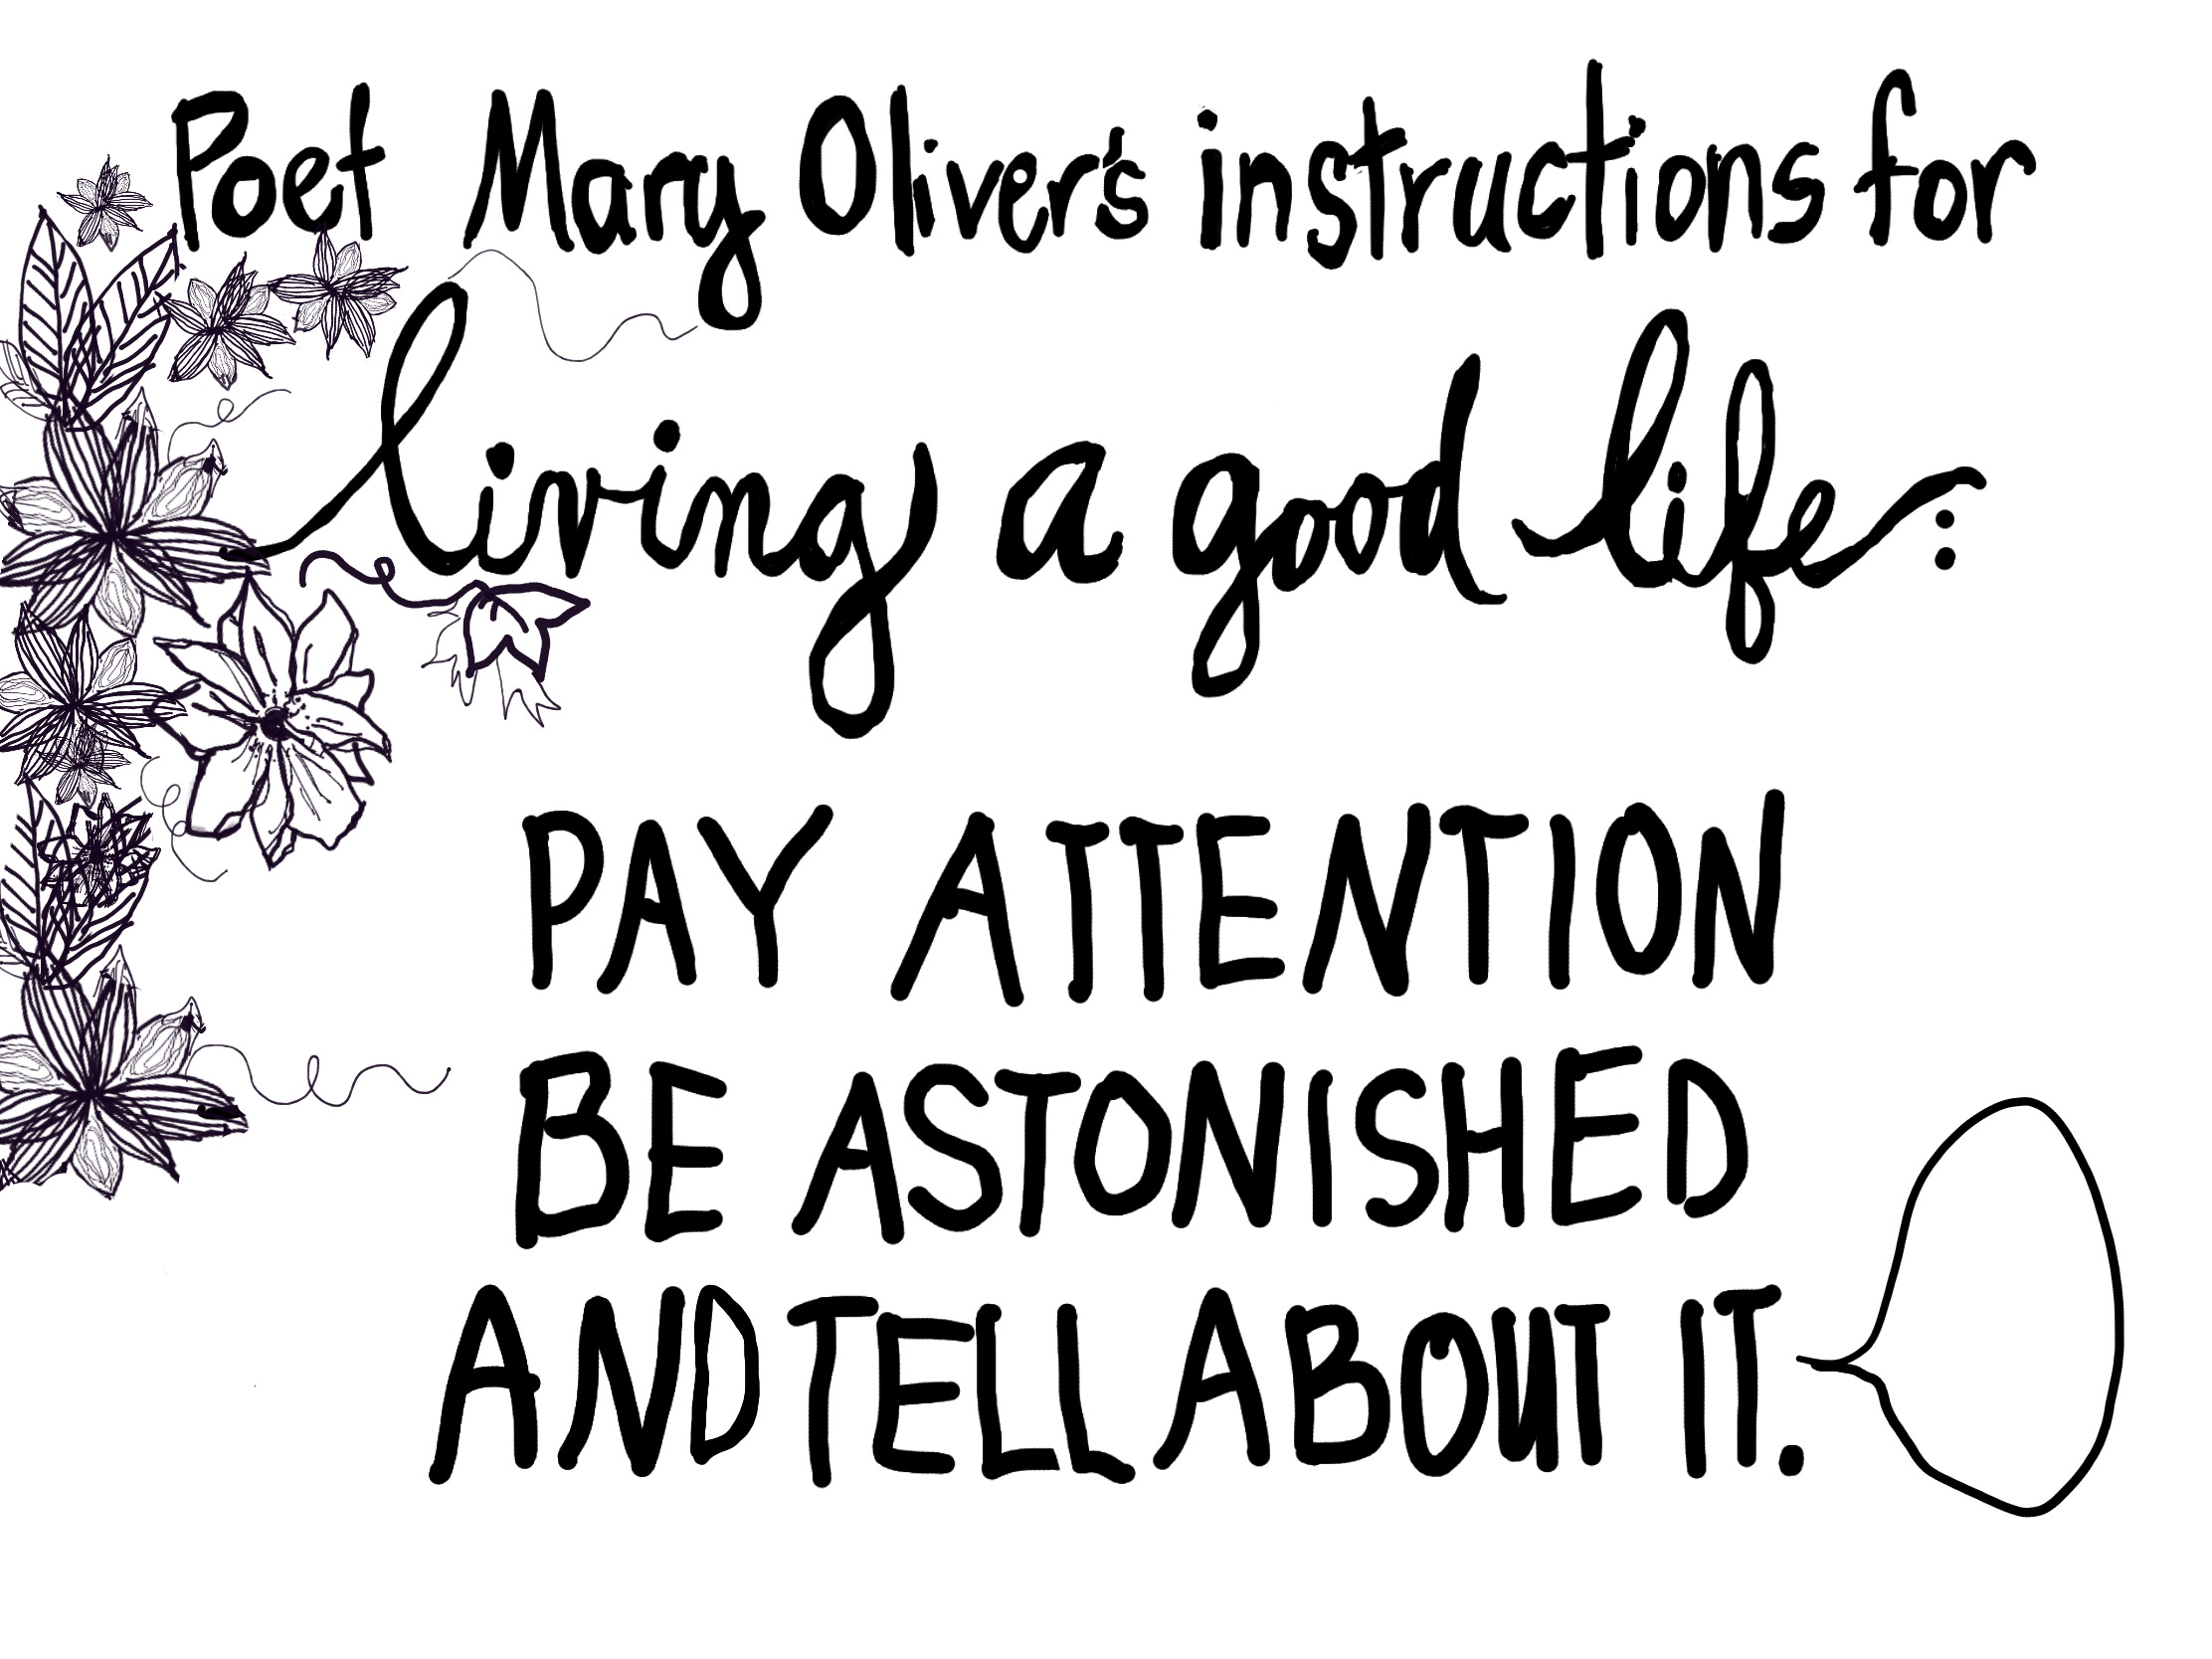 Poet Mary Oliver's instructions for
living a good life:
PAY ATTENTION
BE ASTONISHED
AND TELL ABOUT IT.